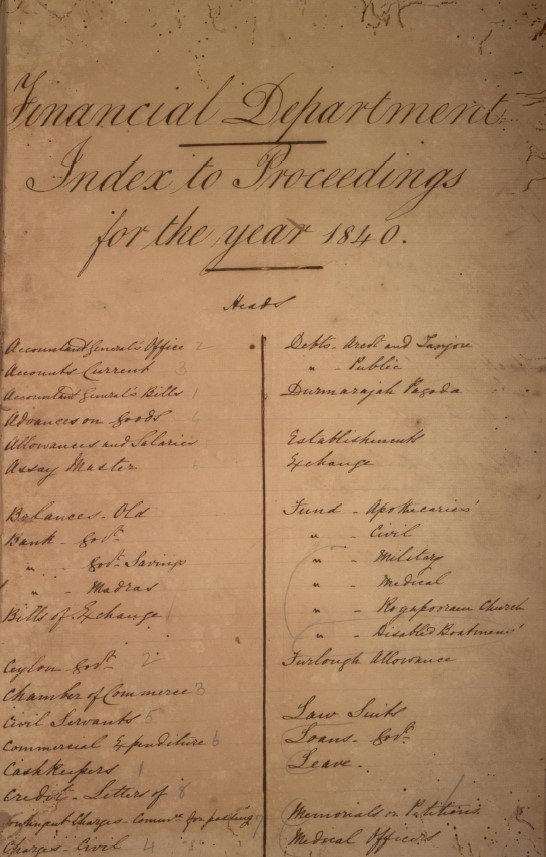 Financial Department
Index to Proceedings
for the year 1840.
Heads
Accountant General's Office 2
Accounts Current 3
Accountant General's Bills 1
Advances on Goods 4
Allowances and Salaries
Assay Master
Balances - Old
Bank - Govt.
" - Govt. Savings
" - Madras
Bills of Exchange 1
Ceylon Govt. 2
Chamber of Commerce 3
Civil Servants 5
Commercial Expenditure 6
Cashkeepers 1
Credit - Letters of 8
Contingent Charges - Commee. for passing 7
Charges - Civil 4
Debts - Arcot and Tanjore
" - Public
Durmarajah Pagoda
Establishments
Exchange
Fund - Apothecaries'
" - Civil
" - Military
" - Medical
" - Royapooram Church
" - Disabled Boatmens'
Furlough Allowance
Law Suits
Loans - Govt.
Leave.
Memorials or Petitions
Medical Officers